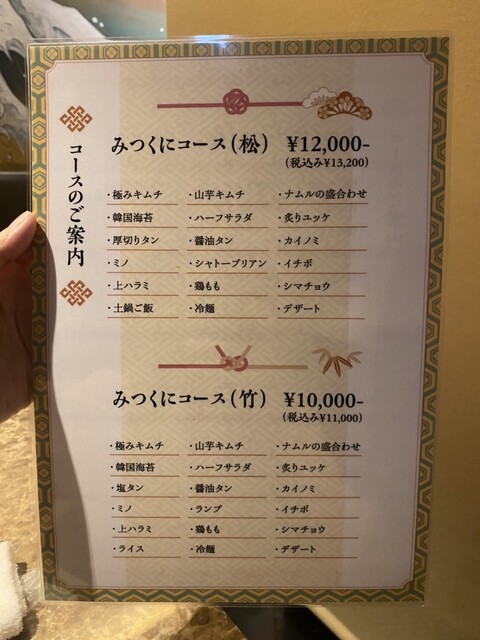 コースのご案内
みつくにコース(松) ¥12,000-
(税込み¥13,200)
・極みキムチ ・山芋キムチ ・ナムルの盛合わせ
・韓国海苔 ・ハーフサラダ ・炙りユッケ
・厚切りタン ・醤油タン ・カイノミ
・ミノ ・シャトーブリアン ・イチボ
・上ハラミ ・鶏もも ・シマチョウ
・土鍋ご飯 ・冷麺 ・デザート
みつくにコース(竹) ¥10,000-
(税込み¥11,000)
・極みキムチ ・山芋キムチ ・ナムルの盛合わせ
・韓国海苔 ・ハーフサラダ ・炙りユッケ
・塩タン ・醤油タン ・カイノミ
・ミノ ・ランプ ・イチボ
・上ハラミ ・鶏もも ・シマチョウ
・ライス ・冷麺 ・デザート